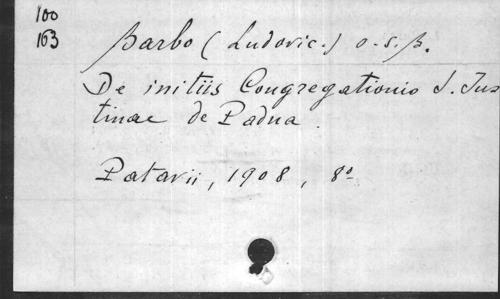 100
163
Barbo (Ludovic.) o.s.B.
De initiis Congregationis S. Jus
tinae de Padua.
Patavii, 1908, 8º